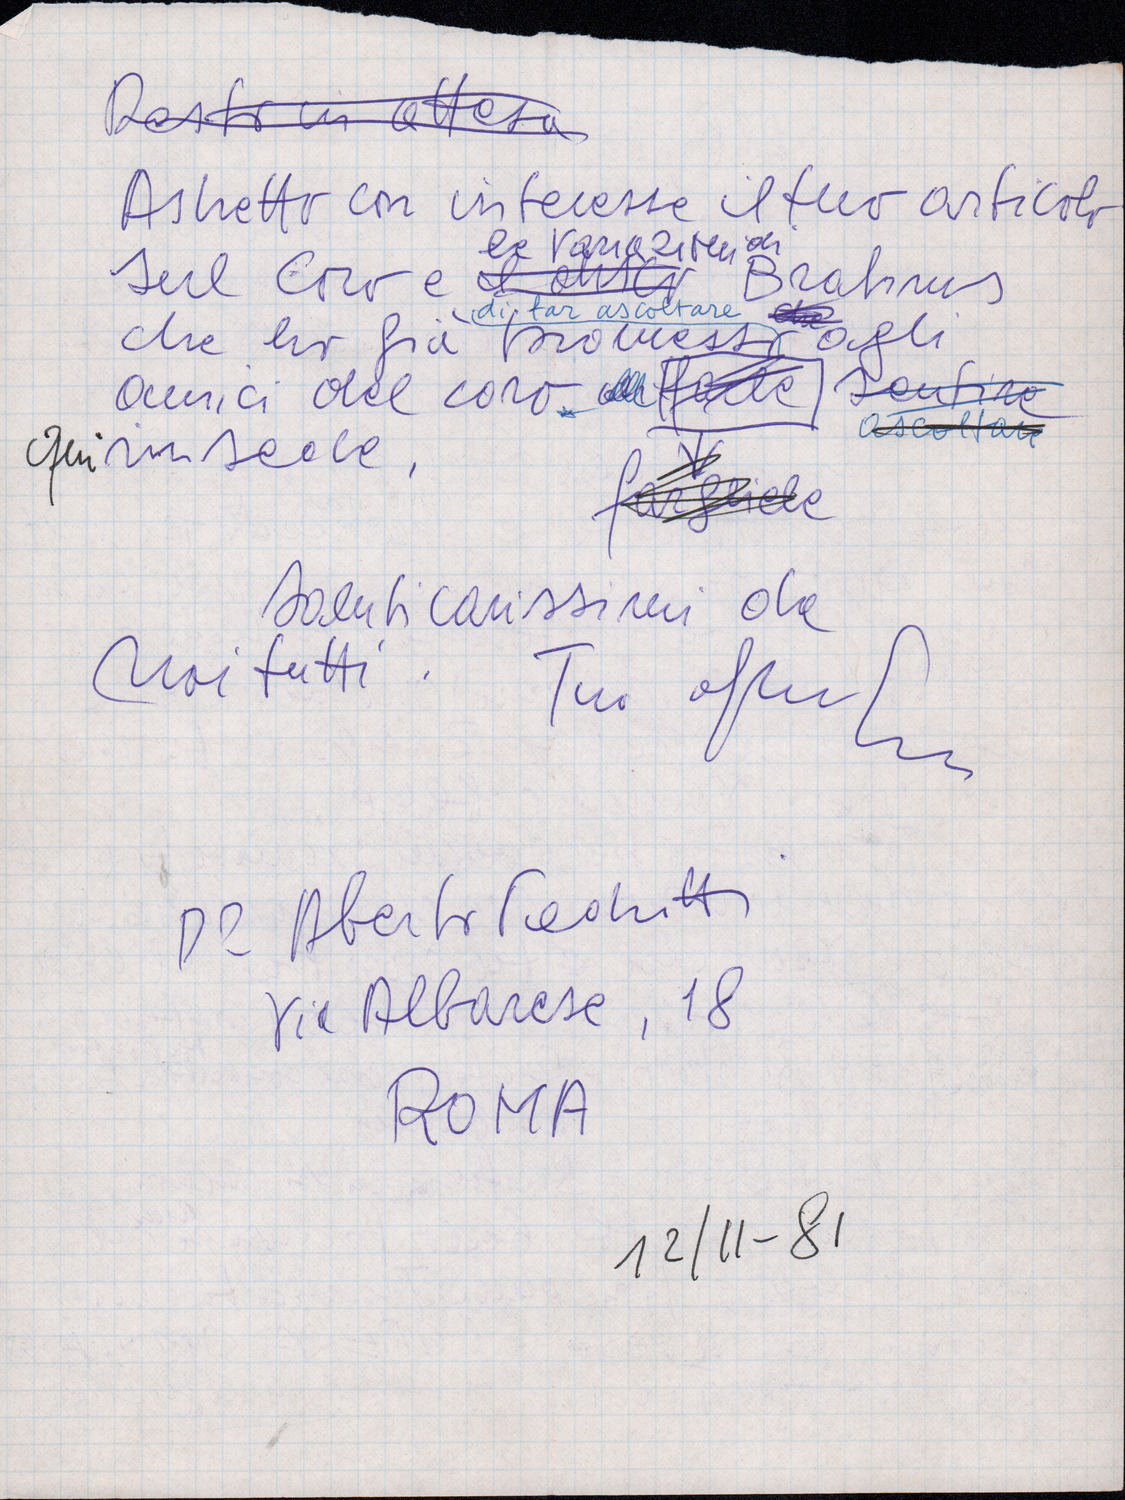 Resto in attesa
Aspetto con interesse il tuo articolo
le variazioni di
sul Coro e il disco Brahms
di far ascoltare
che ho già promesso agli
amici del coro farle sentire
ascoltare
Qui in sede,
fargliele
Saluti carissimi da
noi tutti. Tuo
DR Alberto
Via Albarese, 18
ROMA
12/11-81